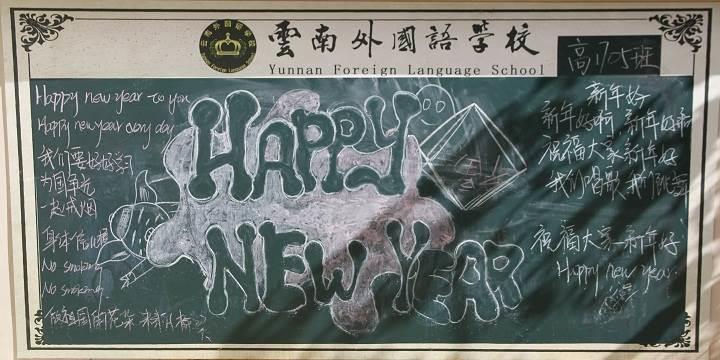 雲南外國語學校
Yunnan Foreign Language School
高1705班
Happy new year to you
Happy new year every day
我们要好好学习
为国争光
一起戒烟
No smoking
No smoking
HAPPY
NEW YEAR
新年好
新年好啊 新年好啊
祝福大家新年好
我们唱歌 我们跳舞
祝福大家新年好
Happy new year